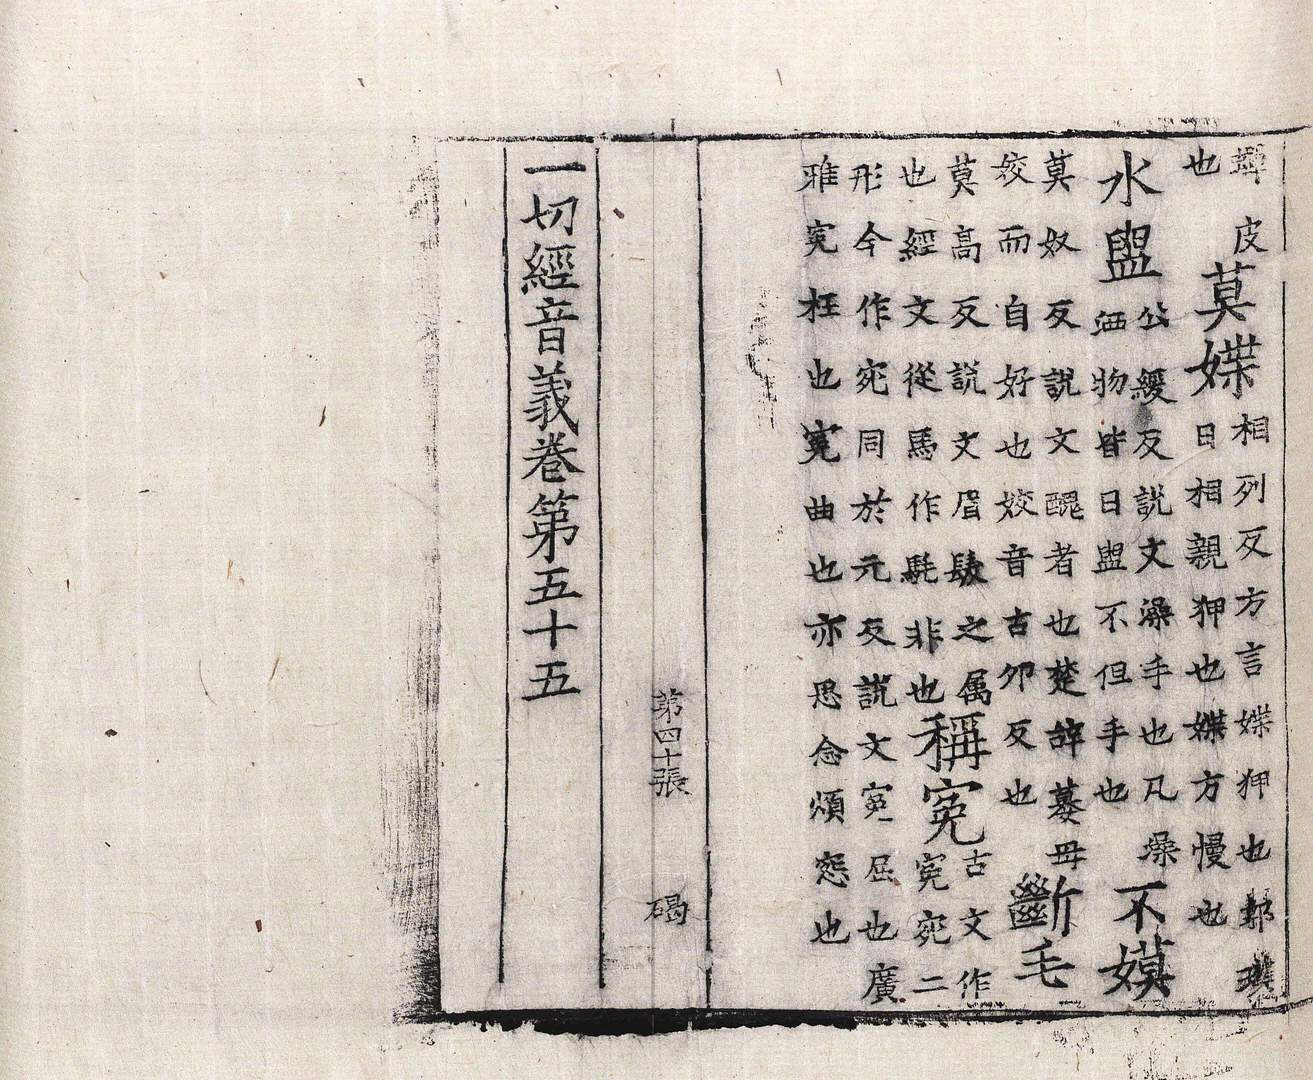 埤皮也莫媟相列反方言媟狎也郭璞曰相親狎也媟方慢也
水盥公緩反說文澡手也凡澡洒物皆曰盥不但手也不嫫
莫奴反說文醜者也楚辞嫫母姣而自好也姣音古卯反也斷毛
莫高反說文眉髮之属也經文從馬作馲非也稱寃古文作寃宛二
形今作宛同於元反說文寃屈也廣雅寃枉也寃曲也亦思念煩怨也
第四十張 碣
一切經音義卷第五十五